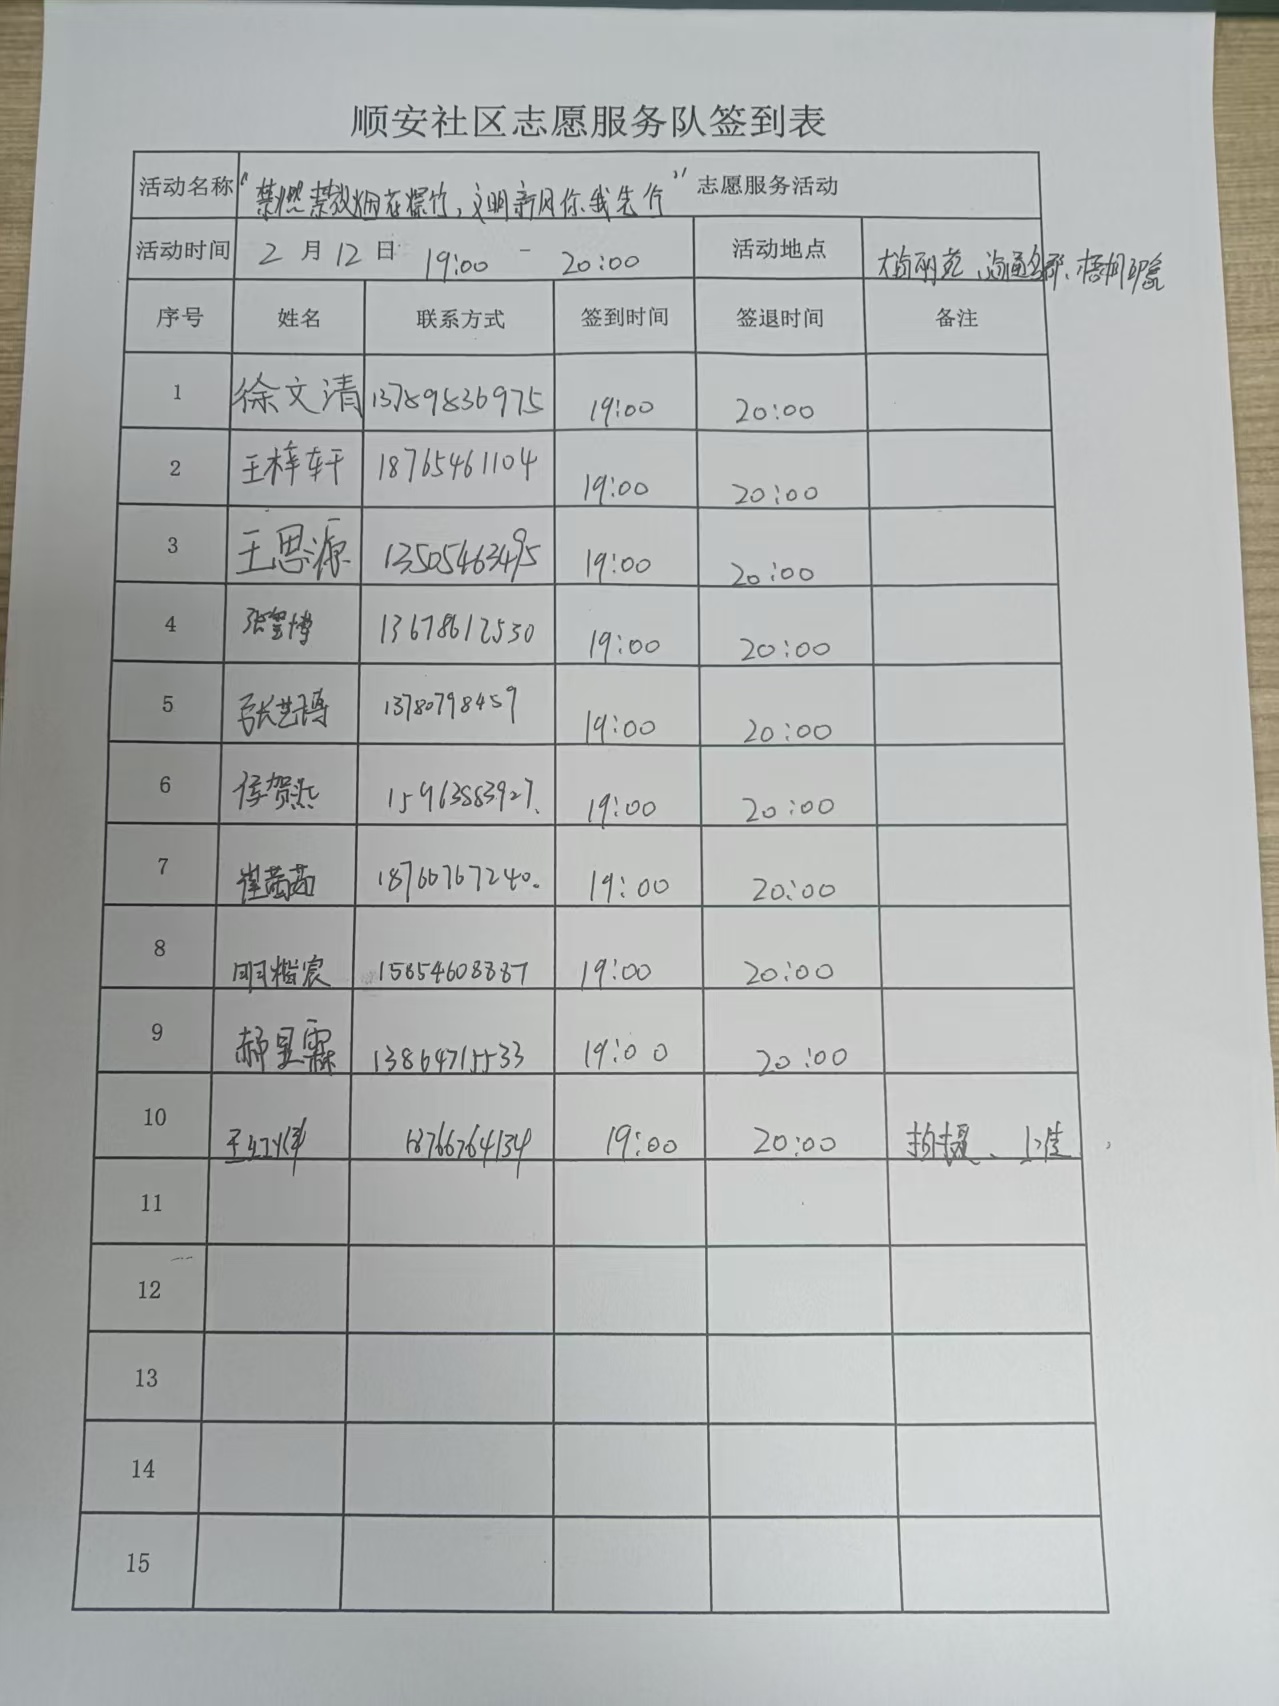 顺安社区志愿服务队签到表
活动名称 “禁燃禁放烟花爆竹，文明新风你我先行”志愿服务活动
活动时间 2月12日 19:00 - 20:00 活动地点
序号 姓名 联系方式 签到时间 签退时间 备注
1 徐文清 13789836975 19:00 20:00
2 王梓轩 18765461104 19:00 20:00
3 王思源 13505463495 19:00 20:00
4 13678612530 19:00 20:00
5 张艺博 13780798459 19:00 20:00
6 19:00 20:00
7 崔茜茜 18766767240. 19:00 20:00
8 明楷宸 15854608887 19:00 20:00
9 郝昱霖 13864715533 19:00 20:00
10 18766764134 19:00 20:00 拍摄、
11
12
13
14
15